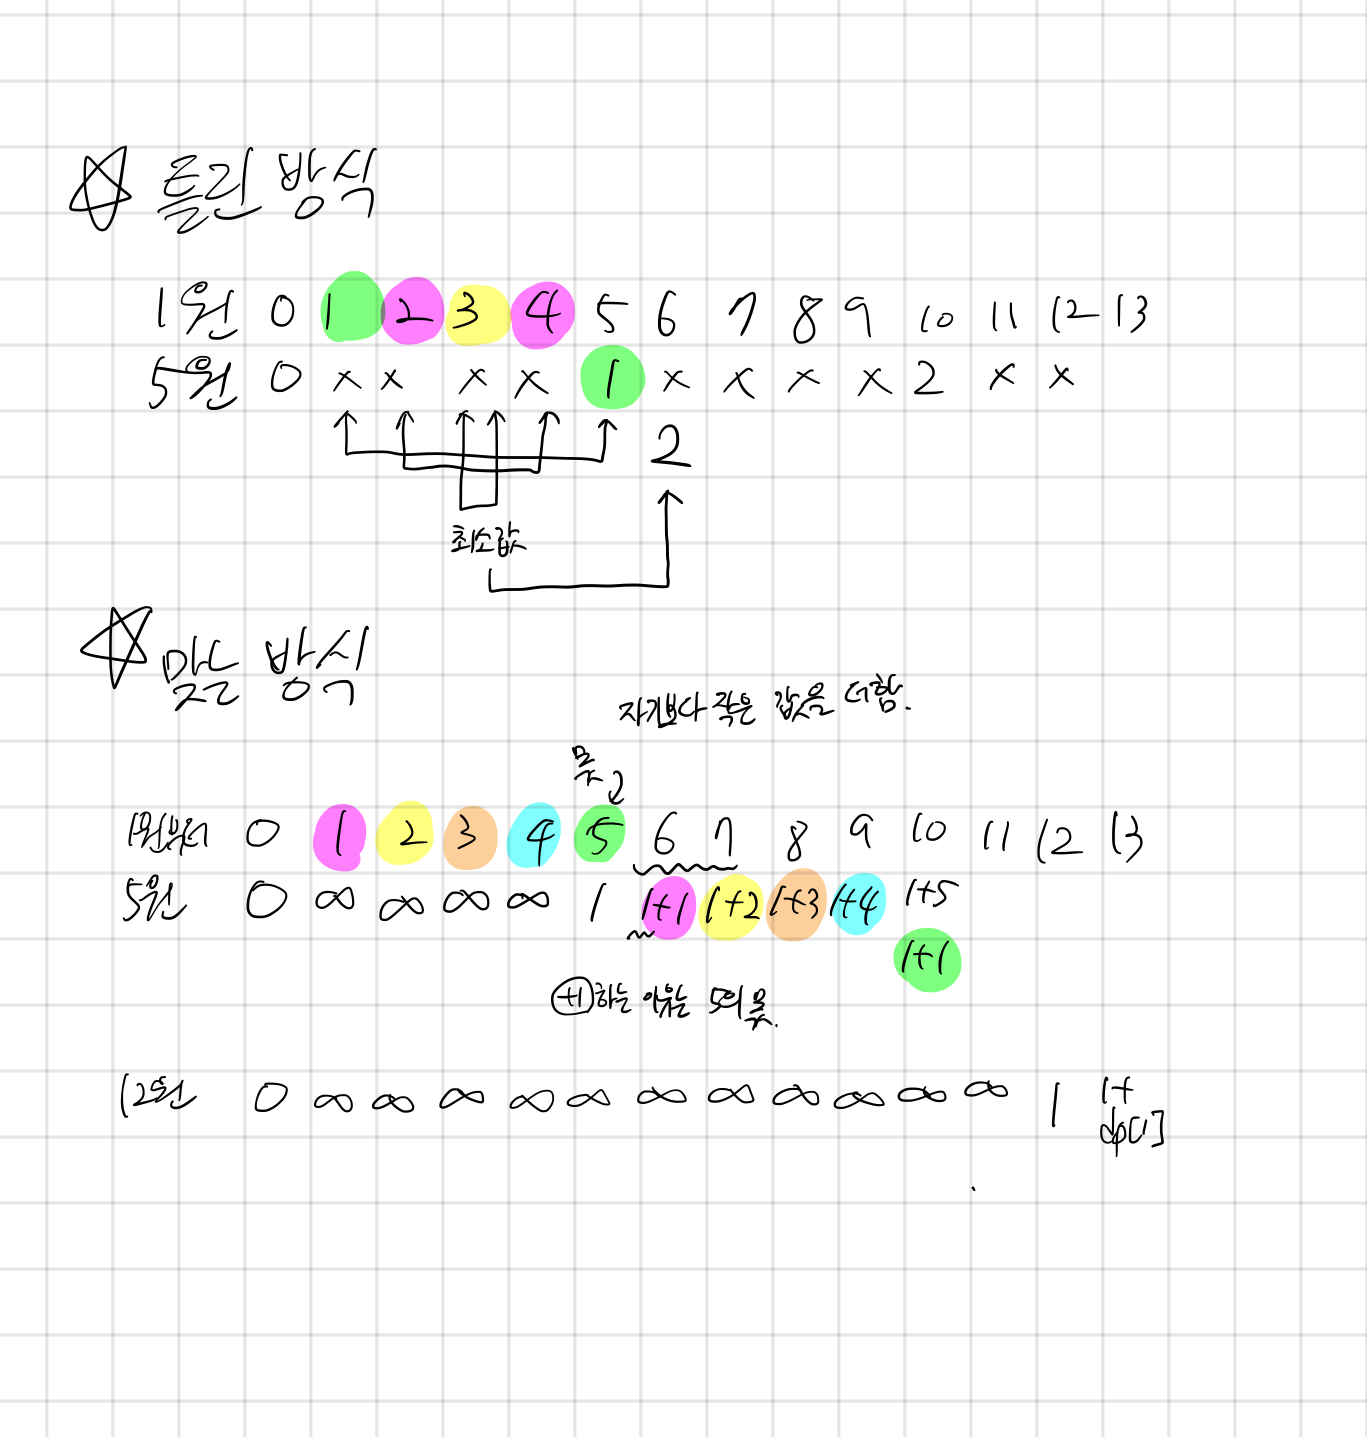 틀린 방식
1원 0 1 2 3 4 5 6 7 8 9 10 11 12 13
5원 0 x x x x 1 x x x x 2 x x
2
최소값
맞는 방식
자기보다 작은 값을 더함.
몫
1원부터 0 1 2 3 4 5 6 7 8 9 10 11 12 13
5원 0 ∞ ∞ ∞ ∞ 1 1+1 1+2 1+3 1+4 1+5
1+1
+1하는 이유는 5의 몫.
12원 0 ∞ ∞ ∞ ∞ ∞ ∞ ∞ ∞ ∞ ∞ ∞ 1 1+
dp[1]